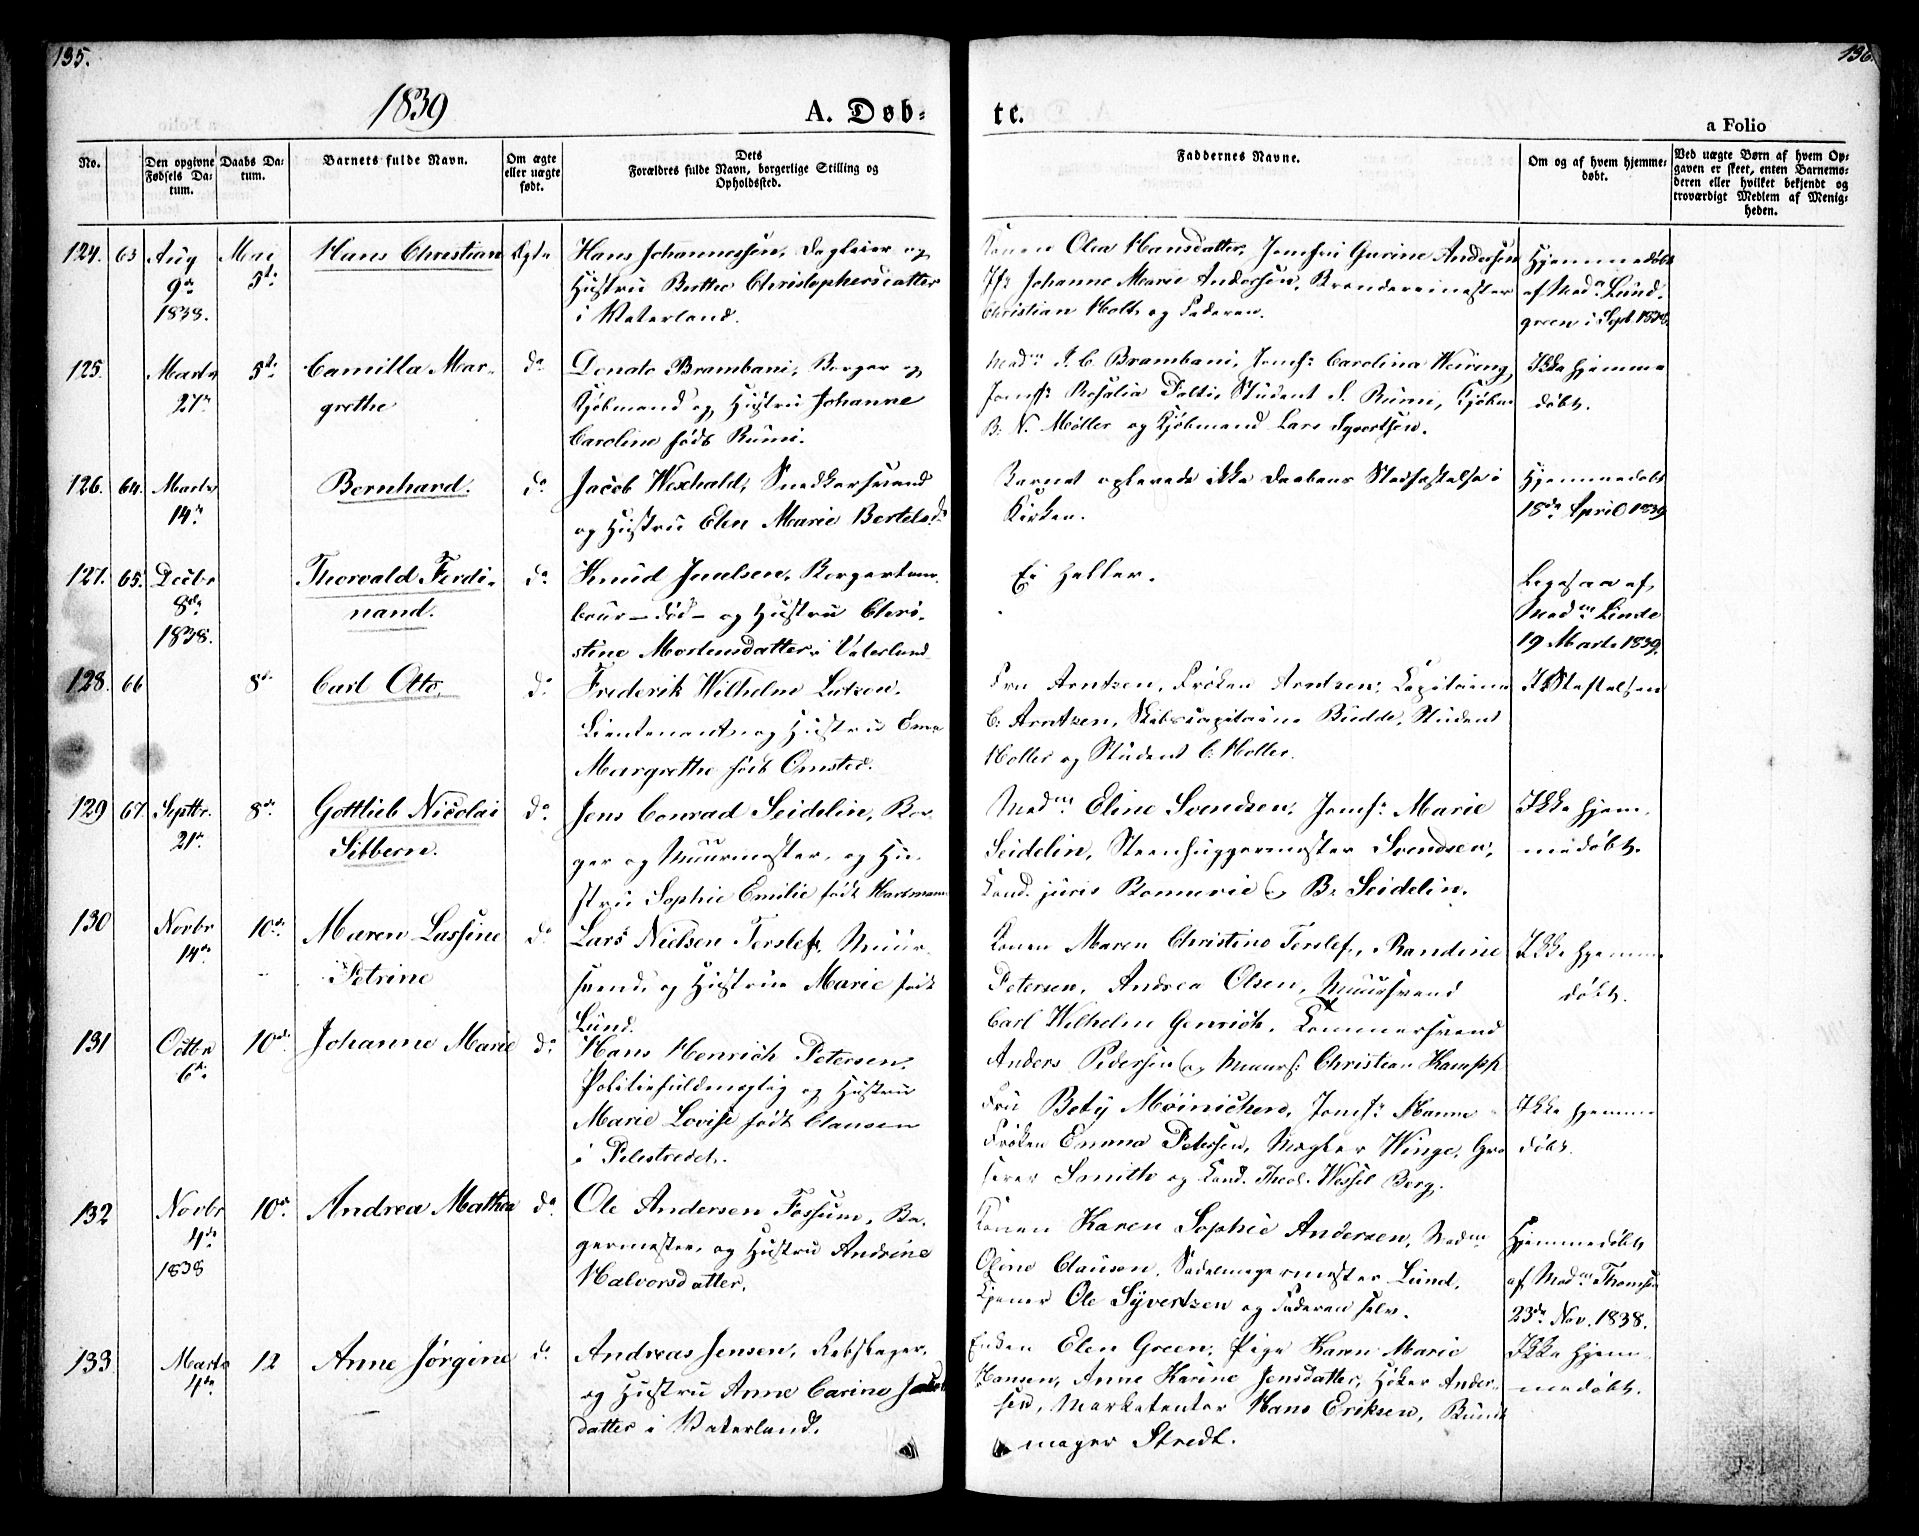 135.
136.
1839
A. Døb-
te.
a Folio
No.
Den opgivne Fødsels Datum.
Daabs Datum.
Barnets fulde Navn.
Om ægte eller uægte født.
Dets Forældres fulde Navn, borgerlige Stilling og Opholdssted.
Faddernes Navne.
Om og af hvem hjemmedøbt.
Ved uægte Børn af hvem Opgaven er skeet, enten Barnemoderen eller hvilket bekjendt og troværdigt Medlem af Menigheden.
124. 63 Aug 9de 1838. Mai 5te Hans Christian Ægte
Hans Johannessen, Dagleier og
Hustru Berthe Christophersdatter
i Vaterland.
Konen Olea Hansdatter, Jomfru Gurine Andersen
Jfr Johanne Marie Andersen, Brænderimester
Christian Holt og Faderen.
Hjemmedøbt
af Mad. Lund-
green i Sept. 1838.
125. Marts 27de 5te Camilla Mar-
grethe do
Donato Brambani, Borger og
Kjøbmand og Hustru Johanne
Caroline født Rumi.
Madm J. C. Brambani, Jomfr Carolina
Jomfr Rosalia Polti, Student S. Rumi,
B. N. Møller og Kjøbmand Lars Syvertsen.
Ikke hjemme
døbt.
126. 64. Marts 14de Bernhard. do
Jacob Wexhald, Snedkersvend
og Hustru Elen Marie Bertelsd.
Barnet oplevede ikke Daabens Stadfæstelse i
Kirken.
Hjemmedøbt
18de April 1839
127. 65. Decbr 8de 1838. Thorvald Ferdi-
nand. do
Knud Juulsen, Borgertam-
bour - død - og Hustru Chri-
stine Mortensdatter i Vaterland
Ei heller.
Ligesaa af
Madm Linde
19 Marts 1839.
128. 66 8de Carl Otto, do
Frederik Wilhelm Lutzen,
Lieutenant og Hustru
Margrethe født Omsted.
Fru Arntzen, Frøken Arntzen, Capitaine
C. Arntzen, Skibscapitaine Budde, Student
Holler og Student C. Holler.
129 67. Septbr. 21de 8de Gottlieb Nicolai
Sibbern. do
Jens Conrad Seidelin, Bor-
ger og Muurmester, og Hu-
stru Sophie Emilie født Hartmann
Madm Eline Svendsen, Jomfr Marie
Seidelin, Steenhuggermester Svendsen,
Cand. juris og B. Seidelin.
Ikke hjem-
medøbt.
130 Novbr 14de 10de Maren Lassine
Petrine do
Lars Nielsen Terslef, Muur-
svend, og Hustru Marie født
Lund.
Konen Maren Christine Terslef, Randine
Petersen, Andrea Olsen, Muursvend
Carl Wilhelm Genrich, Tømmersvend
Anders Pedersen og Muurs. Christian Kampp
Ikke hjemme
døbt.
131 Octbr 6te 10de Johanne Marie do
Hans Henrich Petersen,
Politiefuldmægtig og Hustru
Marie Lovise født Clausen
i Pilestrædet.
Fru Bety Møinichen, Jomfr Hanne
Frøken Emma Petersen, Mægler Winge, Gros-
serer Smitto og Cand. Theol. Wessel Berg.
Ikke hjemme
døbt.
132 Novbr 4de 1838 10de Andrea Mathea do
Ole Andersen Fossum, Ba-
germester, og Hustru Andrine
Halvorsdatter.
Konen Karen Sophie Andersen, Madm
Oline Clausen, Sadelmagermester Lund,
Ole Syvertzen og Faderen selv.
Hjemmedøbt
af Madm Thomsen
23de Nov. 1838.
133 Marts 4de 12 Anne Jørgine do
Andreas Jensen, Rebslager,
og Hustru Anne Carine
datter i Vaterland.
Enken Elen Green, Pige Karen Marie
Hansen, Anne Karine Jensdatter, Høker Ander-
sen, Marketenter Hans Eriksen, Bundt
mager Stredt.
Ikke hjem-
medøbt.